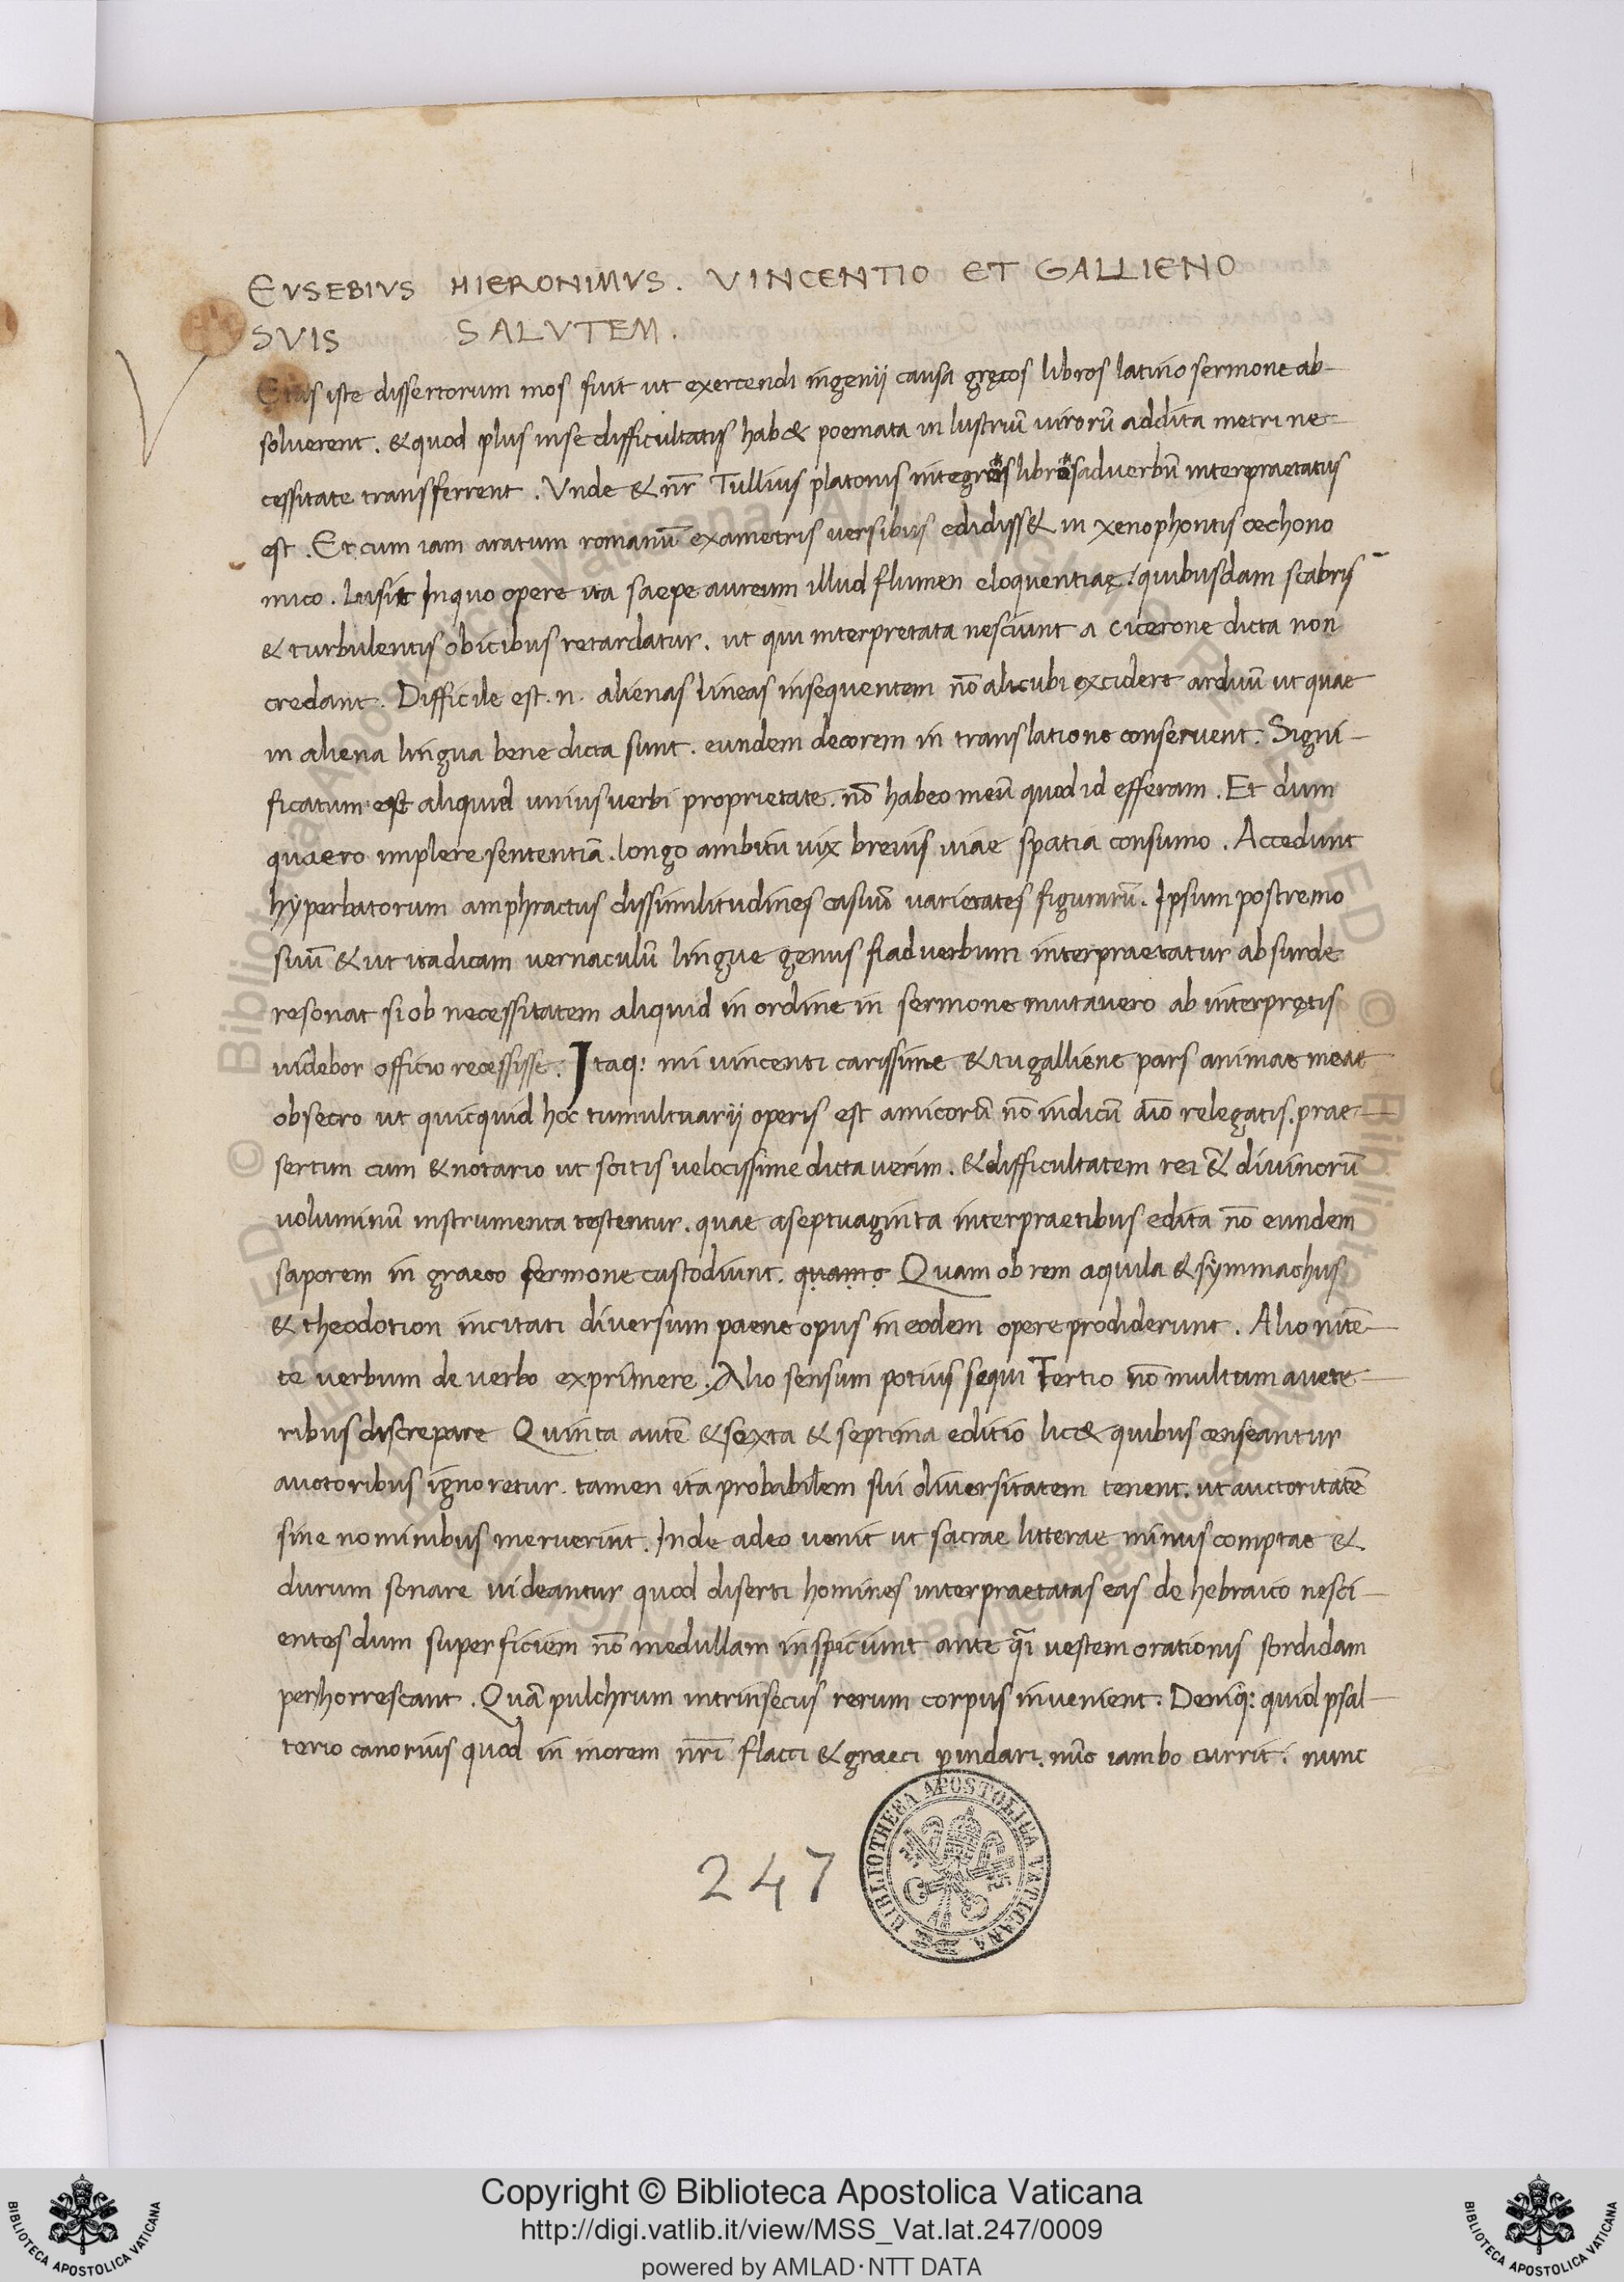 EVSEBIVS HIERONIMVS. VINCENTIO ET GALLIENO
SVIS SALVTEM.
iste dissertorum mos fuit ut exercendi ingenij causa gręcos libros latino sermone ab-
solverent. & quod plus inse difficultatis hab& poemata in lustriū virorū addita metri ne-
cessitate transferrent. Vnde & nr̄ Tullius platonis integros libros adverbū interpraetatus
est. Et cum iam aratum romanū exametris versibus edidiss& in xenophontis oechono
mico. Lusit Inquo opere ita saepe aureum illud flumen eloquentiaę quibusdam scabris
& turbulentis obicibus retardatur. ut qui interpretata nesciunt a cicerone dicta non
credant. Difficile est .n. alienas lineas insequentem nō alicubi excidere arduū ut quae
in aliena lingua bene dicta sunt. eundem decorem in translatione conservent. Signi-
ficatum est aliquid unius verbi proprietate. nō habeo meū quod id efferam. Et dum
quaero implere sententiā. longo ambitu vix brevis viae spatia consumo. Accedunt
hyperbatorum amphractus dissimilitudines casuū varietates figurarū. Ipsum postremo
suū & ut ita dicam vernaculū lingue genus si ad verbum interpraetatur absurde
resonat si ob necessitatem aliquid in ordine in sermone mutavero ab interprętis
videbor officio recessisse. Itaq: mi vincenti carissime & tu galliene pars animae meae
obsecro ut quicquid hoc tumultuarij operis est amicorū nō iudicū aīo relegatis. prae-
sertim cum & notario ut scitis velocissime dictaverim. & difficultatem rei & divinorū
voluminū instrumenta testentur. quae a septuaginta interpraetibus edita nō eundem
saporem in graeco sermone custodiunt. quamo Quam ob rem aquila & symmachus
& theodotion incitati diversum paene opus in eodem opere prodiderunt. Alio nitē-
te verbum de verbo exprimere. Alio sensum potius sequi Tertio nō multum a vete-
ribus discrepare Quinta autē & sexta & septima editio lic& quibus censeantur
auctoribus ignoretur. tamen ita probabilem sui diversitatem tenent. ut auctoritatē
sine nominibus meruerint. Inde adeo venit ut sacrae litterae minus comptae &
durum sonare videantur quod diserti homines interpraetatas eas de hebraico nesci-
entes dum superficiem nō medullam inspiciunt ante q̄i vestem orationis sordidam
perhorrescant. Quā pulchrum intrinsecus rerum corpus invenient. Deniq: quid psal-
terio canorius quod in morem nr̄i flacci & graeci pindari. nūc iambo currit. nunc
247
BIBLIOTHECA APOSTOLICA VATICANA
Copyright © Biblioteca Apostolica Vaticana
http://digi.vatlib.it/view/MSS_Vat.lat.247/0009
powered by AMLAD·NTT DATA
BIBLIOTECA APOSTOLICA VATICANA
BIBLIOTECA APOSTOLICA VATICANA